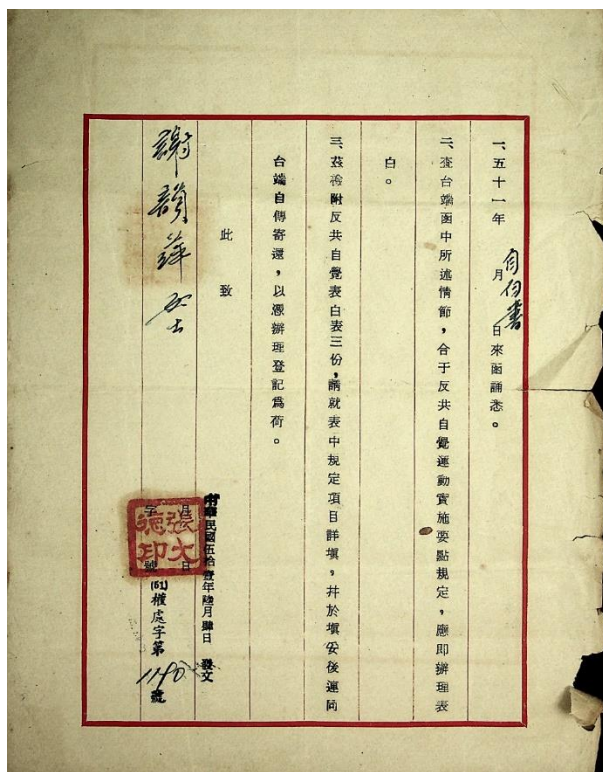 一、五十一年 月 日來函誦悉。
自白書
二、查台端函中所述情節，合于反共自覺運動實施要點規定，應即辦理表
白。
三、茲檢附反共自覺表白表三份，請就表中規定項目詳填，并於填妥後連同
台端自傳寄還，以憑辦理登記爲荷。
此致
謝韻 女士
中華民國伍拾壹年陸月肆日 發文
月 日
字 號
(51)權處字第1190號
張文德印